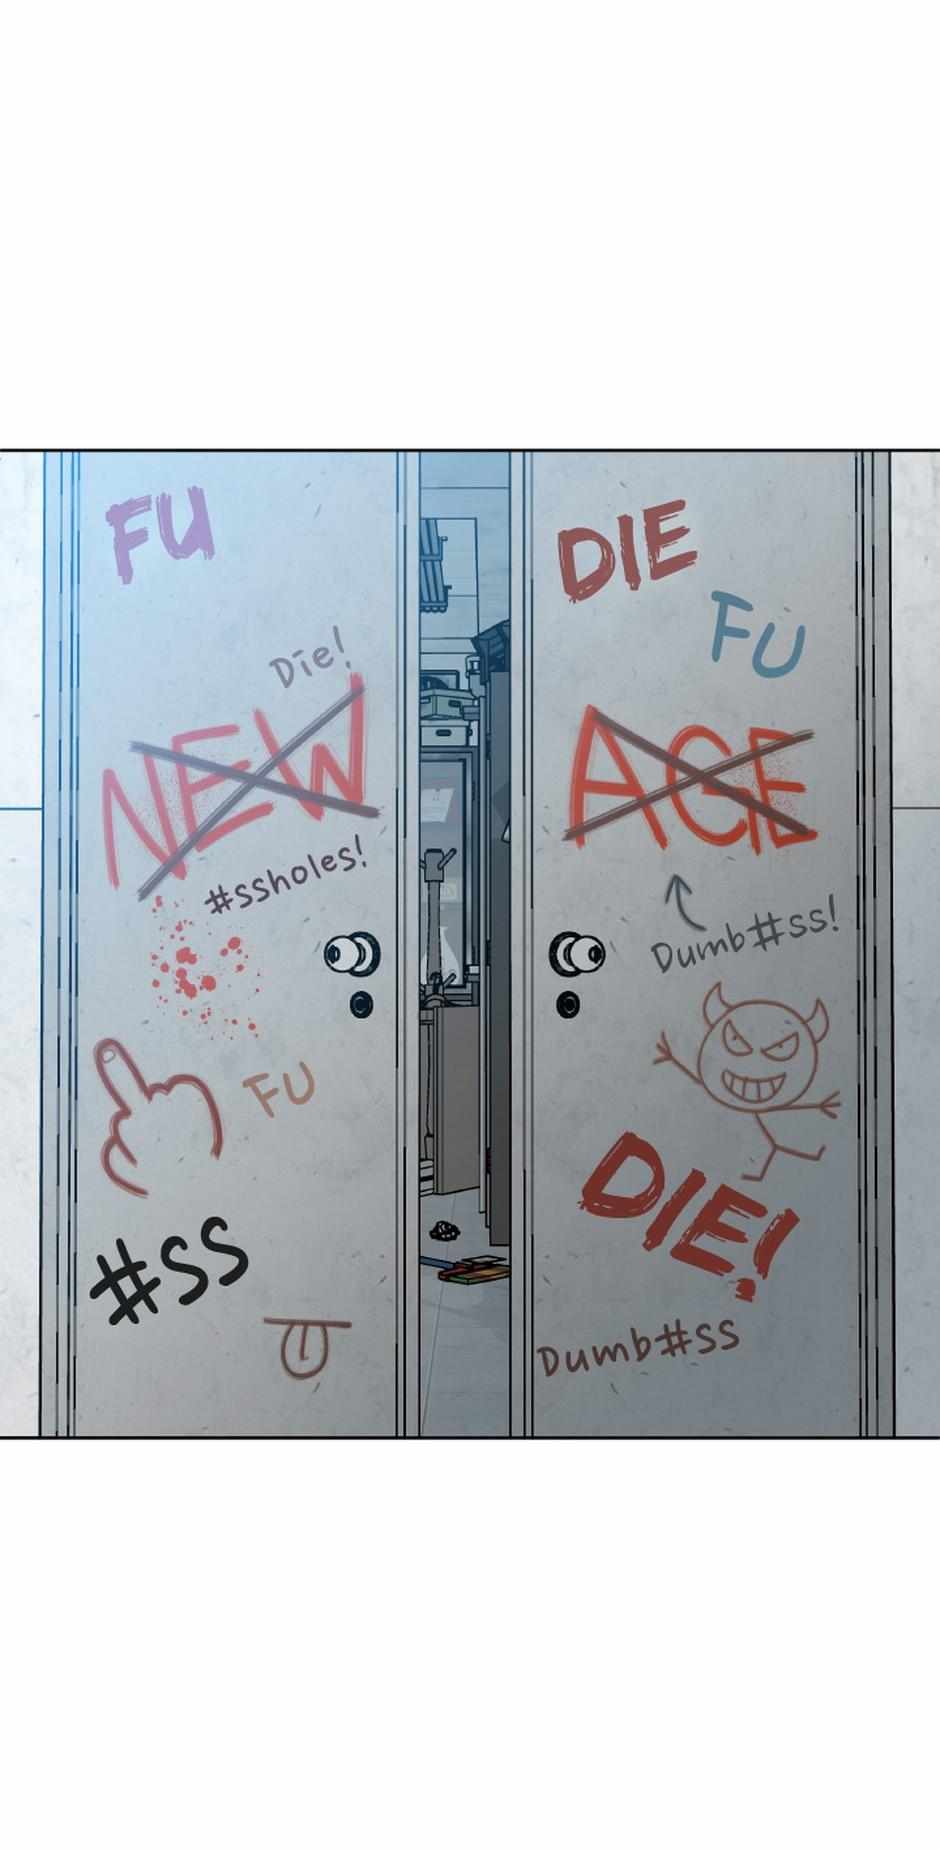 FU
Die!
NEW
#ssholes!
FU
#SS
DIE
FU
AGE
Dumb#ss!
DIE!
Dumb#ss